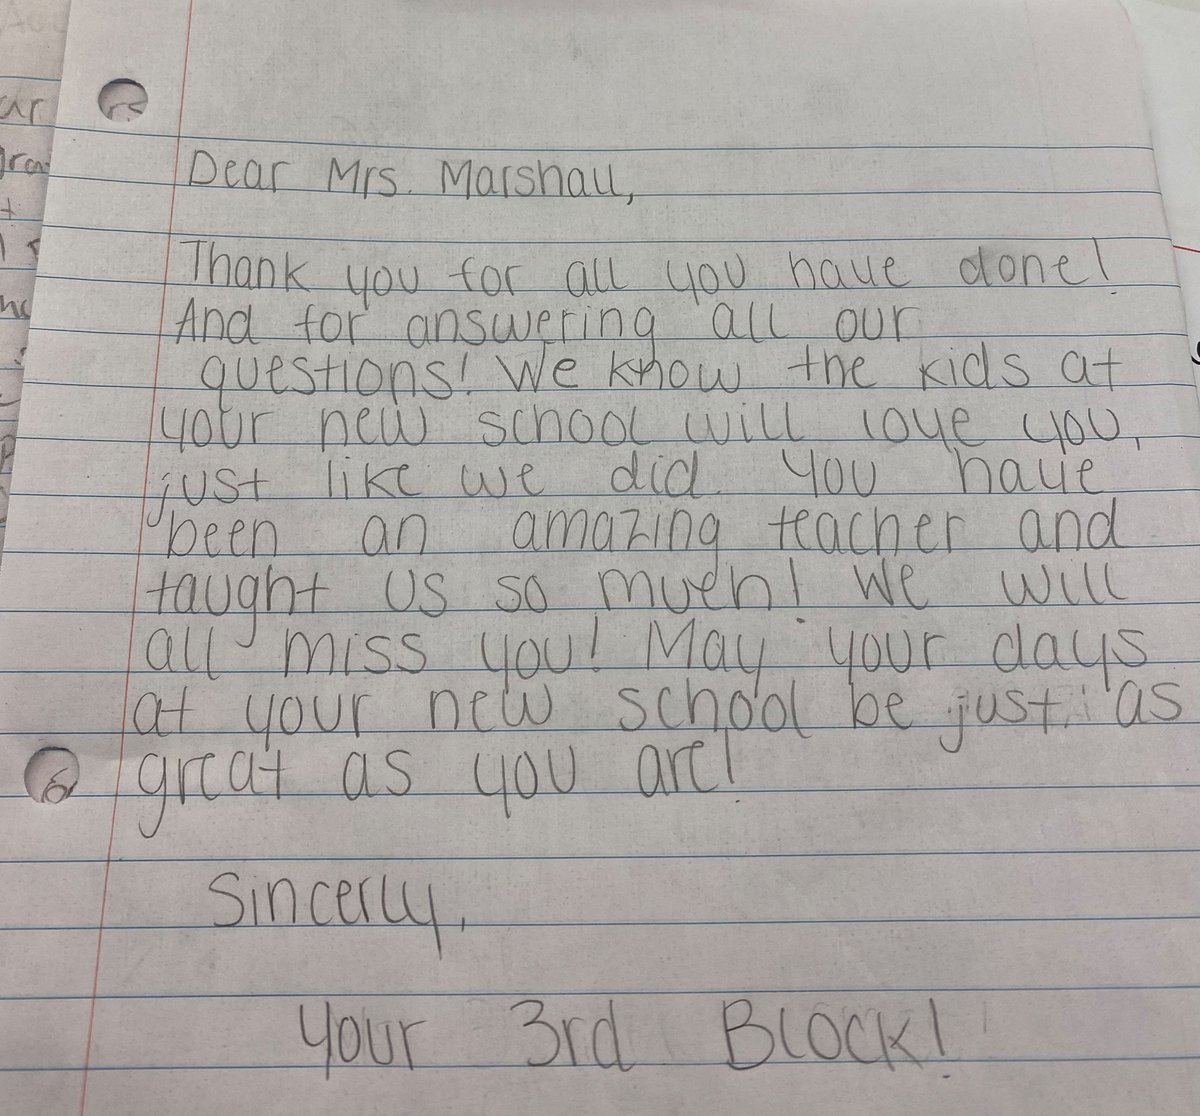 Dear Mrs. Marshall,
Thank you for all you have done!
And for answering all our
questions! We know the kids at
your new school will love you,
just like we did. You have
been an amazing teacher and
taught us so much! We will
all miss you! May your days
at your new school be just as
great as you are!
Sincerly,
Your 3rd Block!